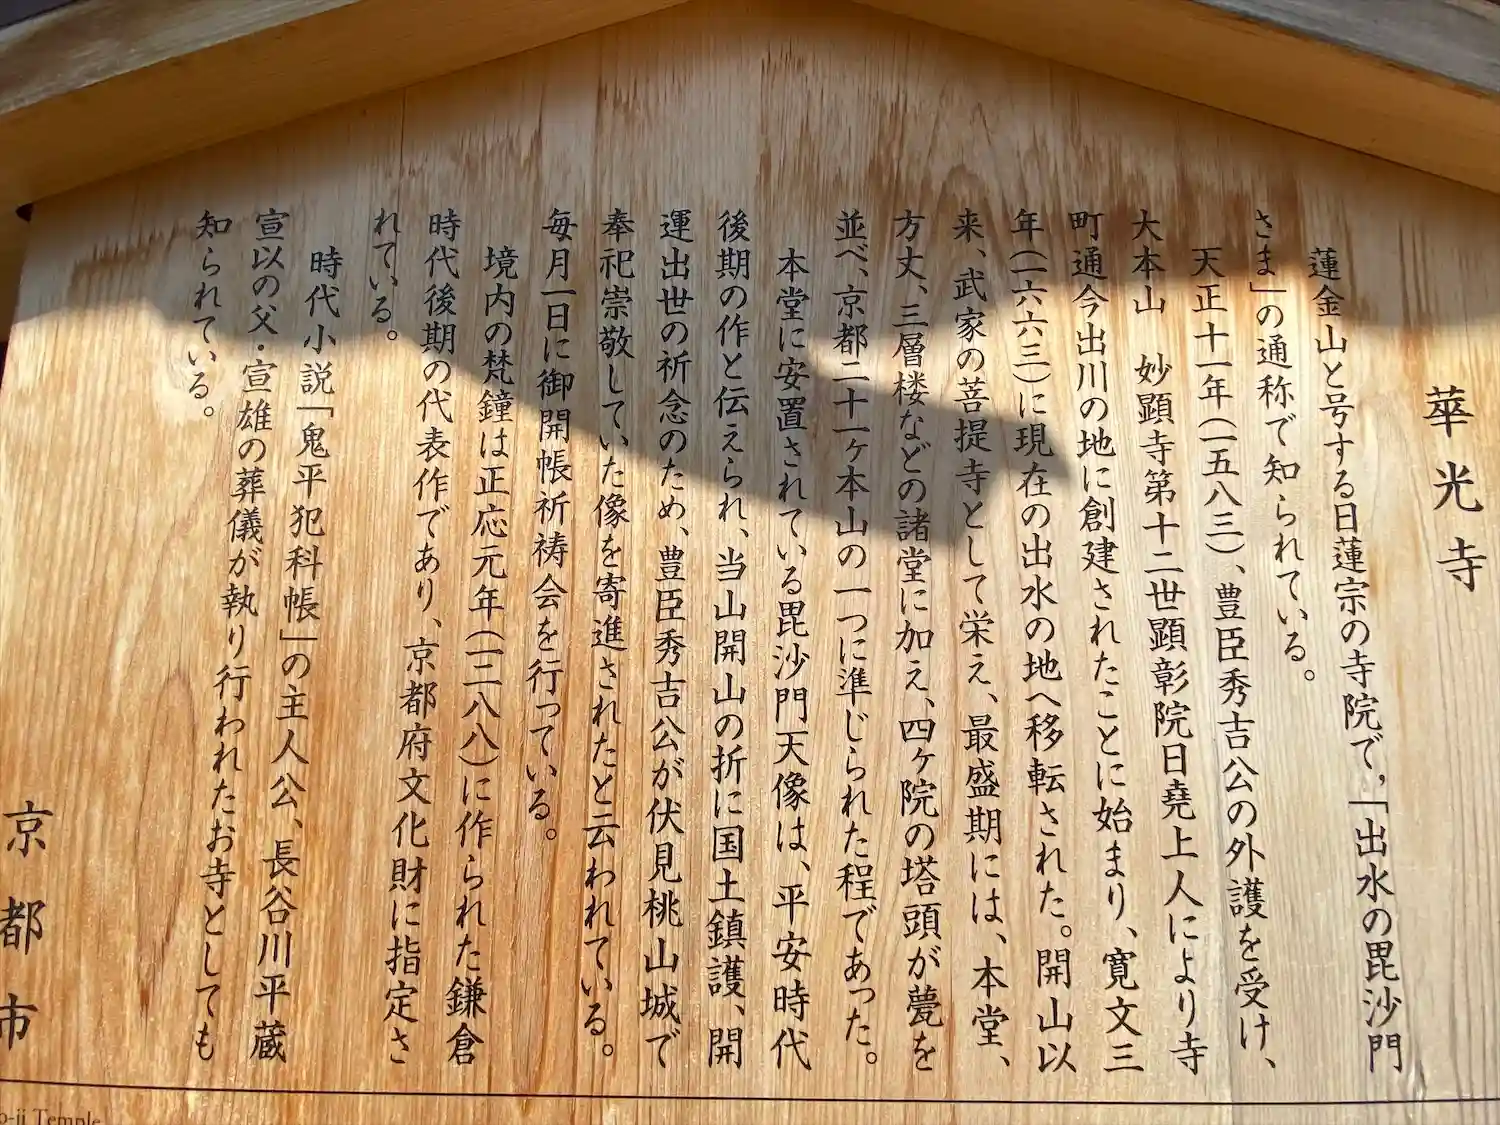 華光寺
蓮金山と号する日蓮宗の寺院で，「出水の毘沙門
さま」の通称で知られている。
天正十一年（一五八三）、豊臣秀吉公の外護を受け、
大本山　妙顕寺第十二世顕彰院日堯上人により寺
町通今出川の地に創建されたことに始まり、寛文三
年（一六六三）に現在の出水の地へ移転された。開山以
来、武家の菩提寺として栄え、最盛期には、本堂、
方丈、三層楼などの諸堂に加え、四ヶ院の塔頭が甍を
並べ、京都二十一ヶ本山の一つに準じられた程であった。
本堂に安置されている毘沙門天像は、平安時代
後期の作と伝えられ、当山開山の折に国土鎮護、開
運出世の祈念のため、豊臣秀吉公が伏見桃山城で
奉祀崇敬していた像を寄進されたと云われている。
毎月一日に御開帳祈祷会を行っている。
境内の梵鐘は正応元年（一二八八）に作られた鎌倉
時代後期の代表作であり、京都府文化財に指定さ
れている。
時代小説「鬼平犯科帳」の主人公、長谷川平蔵
宣以の父・宣雄の葬儀が執り行われたお寺としても
知られている。
京都市
o-ji Temple